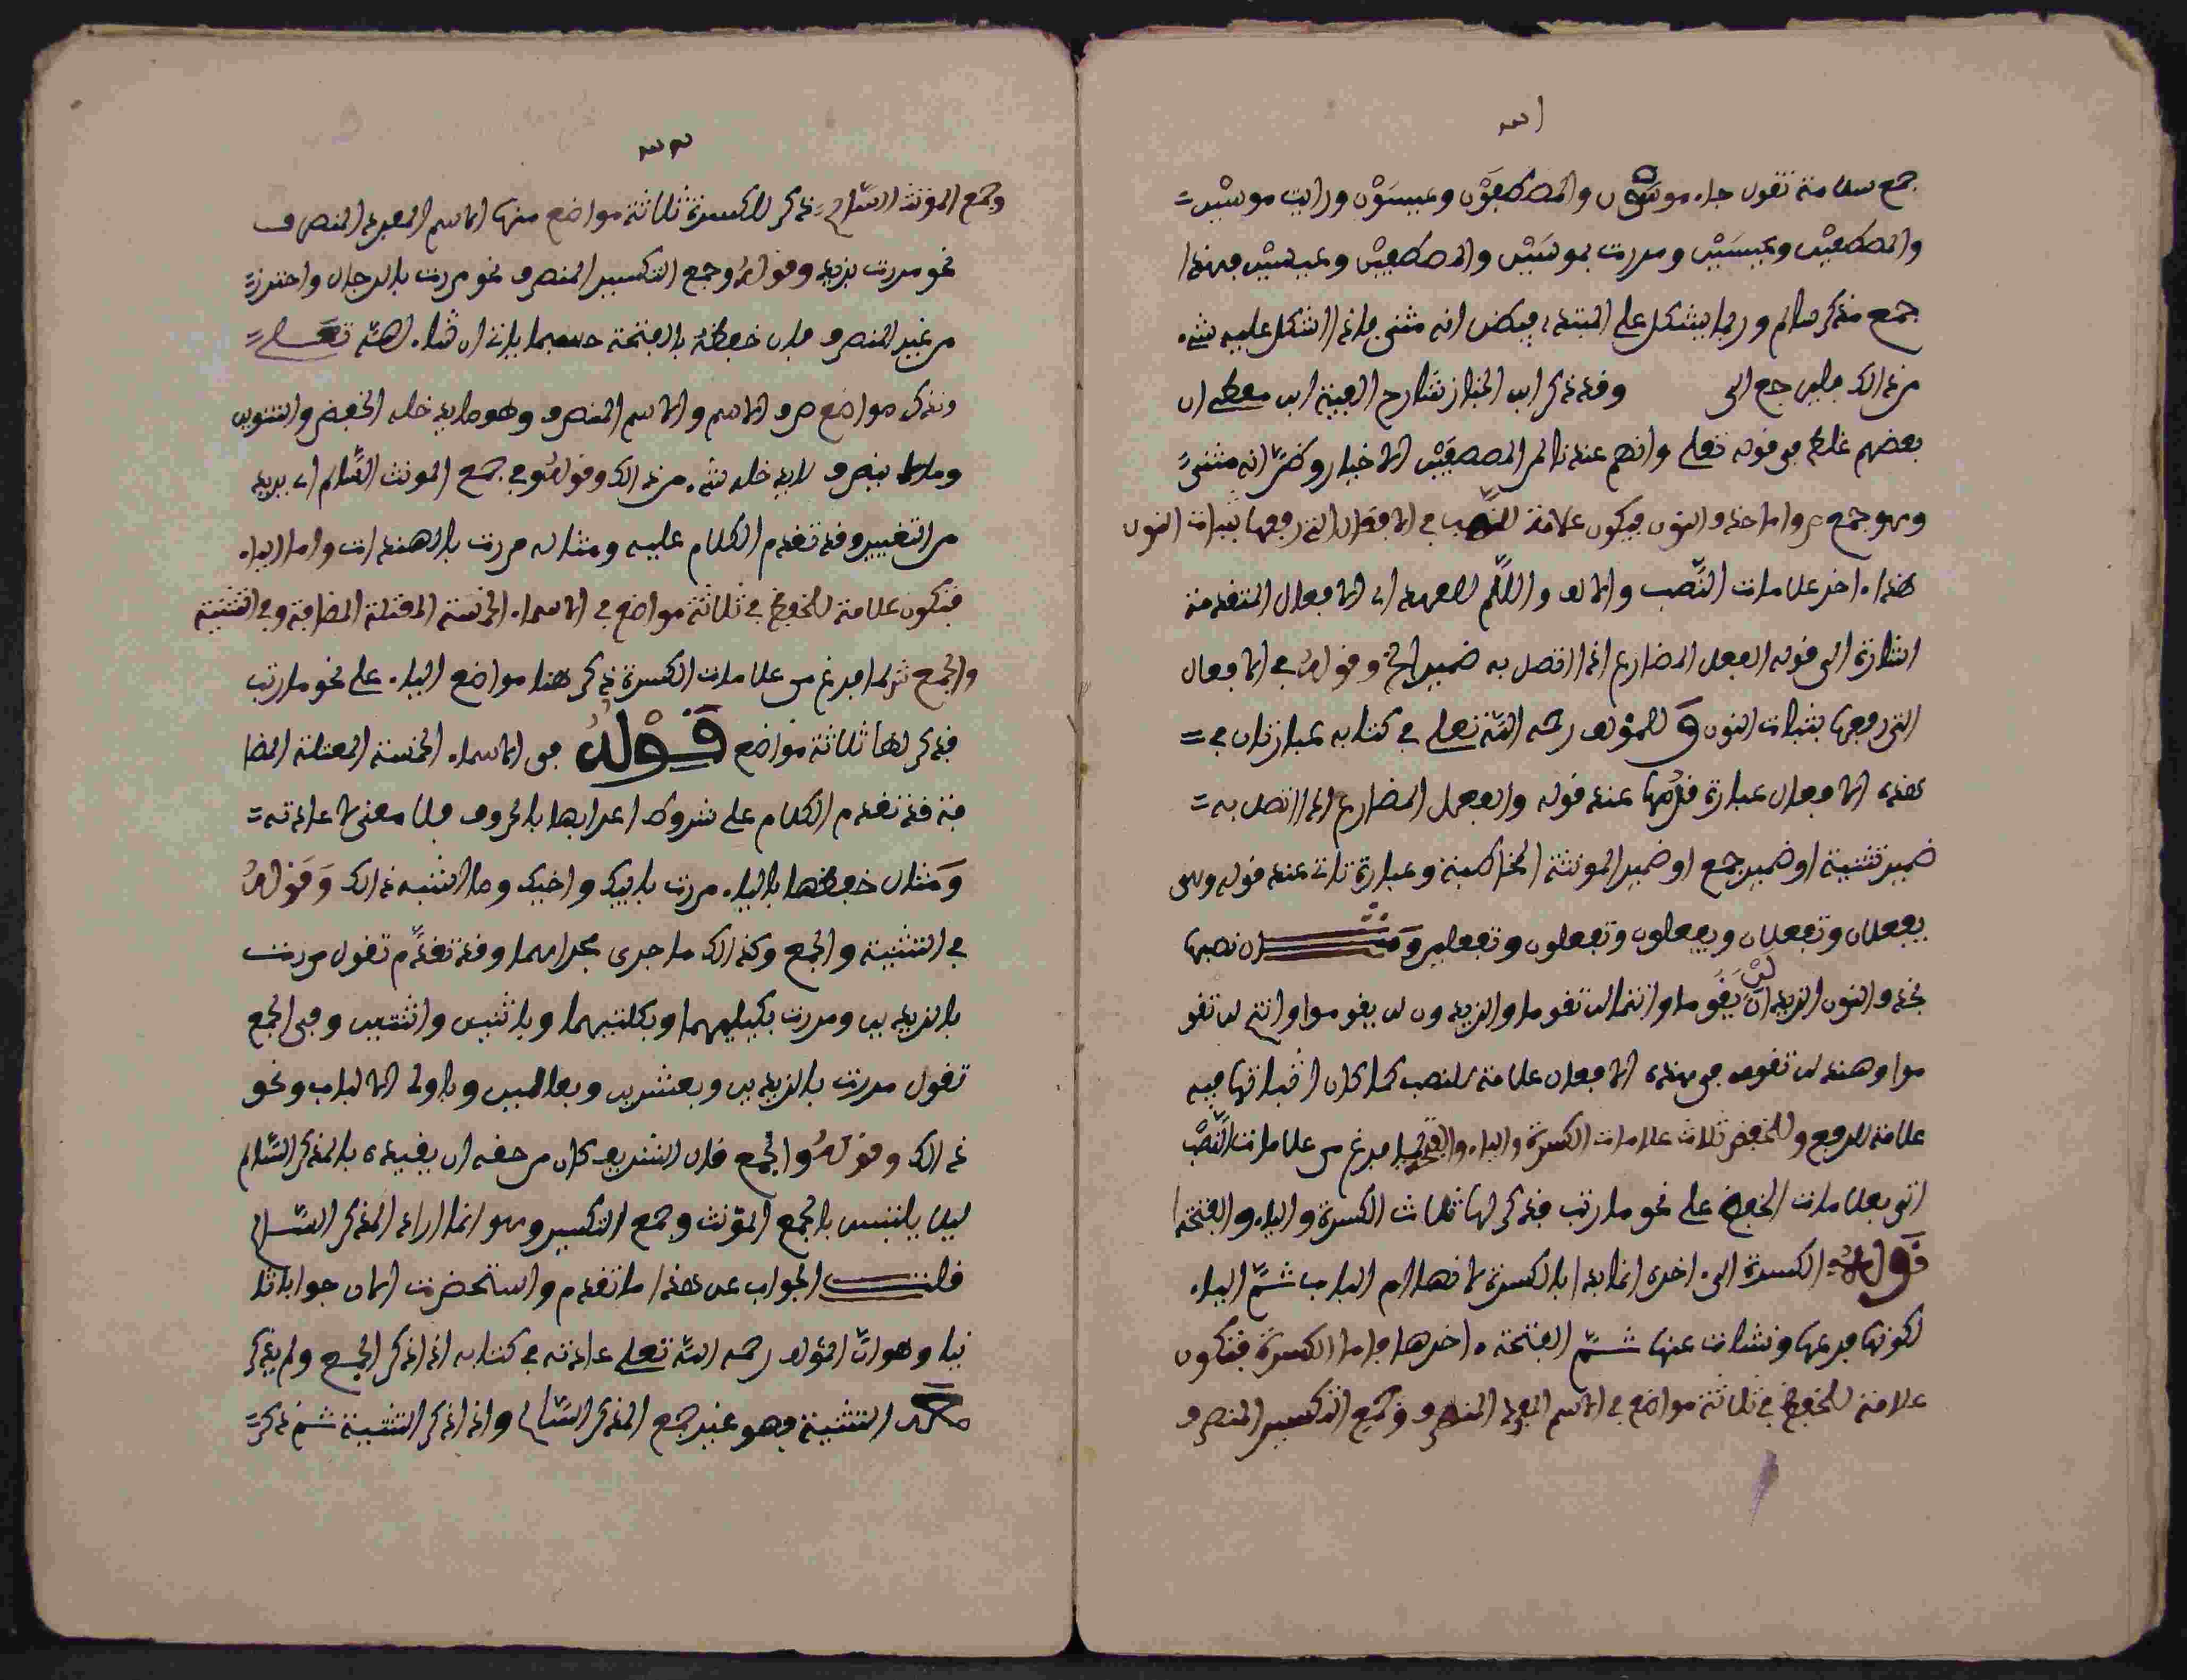 جمع سلامة تقول جاء موسَوْن والمصطفَوْن وعيسَوْن ورايت موسَيْن
والمصطفَيْن وعيسَيْن ومررت بموسَيْن والمصطفَيْن وعيسَيْن فهذا
جمع مذكر سالم وربما يشكل على المبتدء فيظن انه مثنى فاذا اشكل عليه شيء
من ذالك فليرجع الى وقد ذكر ابن الخباز شارح الفية ابن معطي ان
بعضهم غلط في قوله تعلى وانهم عندنا لمن المصطفَيْن الاخيار وظنّ انه مثنىً
وهو جمع واما حذف النون فيكون علامة للنّصب في الافعال التي رفعها بثبات النون
هذا ءاخر علامات النّصب والالف واللّام للعهد اي الافعال المتقدمة
اشارة الى قوله الفعل المضارع اذا اتصل به ضمير الخ وقولهُ في الافعال
التي رفعها بثبات النون وَ للمؤلف رحمه اللّه تعلى في كتابه عبارتان في
هذه الافعال عبارة قدّمها عند قوله والفعل المضارع اذا اتصل به
ضمير تثنية او ضمير جمع او ضمير المونثة المخاطبة وعبارة تات عند قوله وهي
يفعلان وتفعلان ويفعلون وتفعلون وتفعلين ومثال نصبها
بحذف النون الزيدان لَنْ يقوما وانتما لن تقوما والزيدون لن يقوموا وانتم لن تقو
موا وهند لن تقوم في هذه الافعال علامة للنصب كما كان اثباتها فيه
علامة للرفع وللخفض ثلاث علامات الكسرة والياء والفتحة لما فرغ من علامات النّصْب
اتى بعلامات الخفض على نحو ما رتب فذكر لها ثلاث الكسرة والياء والفتحة
قَولهُ الكسرة الى ءاخره انما بدا بالكسرة لانها ام الباب ثمّ الياء
لكونها فرعها ونشات عنها ثمّ الفتحة ءاخرها فاما الكسرة فتكون
علامة للخفض في ثلاثة مواضع في الاسم المفرد المنصرف وجمع التكسير المنصرف
وجمع المؤنث السّالم ذكر للكسرة ثلاثة مواضع منها الاسم المفرد المنصرف
نحو مررت بزيد وقولهُ وجمع التكسير المنصرف نحو مررت بالرجال واحترز
من غير المنصرف فان خفظه بالفتحة حسبما ياتي ان شاء اللّه تعلى
ونذكر مواضع صرف الاسم والاسم المنصرف وهو ما يدخله الخفض والتنوين
وما لا ينصرف لا يدخله شيء من ذالك وقولهُ وفي جمع المونث السّالم اي بريد
من التغيير وقد تقدم الكلام عليه ومثاله مررت بالهندات واما الياء
فتكون علامة للخفض في ثلاثة مواضع في الاسماء الخمسة المعتلة المضافة وفي التثنية
والجمع لما فرغ من علامات الكسرة ذكر هنا مواضع الياء على نحو ما رتب
فذكر لها ثلاثة مواضع قَوْلهُ في الاسماء الخمسة المعتلة المضا
فة قد تقدم الكلام على شروط اعرابها بالحروف فلا معنى لاعادته
وَمثال خفظها بالياء مررت بابيك واخيك وما اشبه ذالك وَقَولهُ
في التثنية والجمع وكذالك ما جرى مجراهما وقد تقدّم تقول مررت
بالزيدين ومررت بكليهما وبكلتيهما وباثنين واثنتين وفي الجمع
تقول مررت بالزيدين وبعشرين وبعالمين وباولى الالباب ونحو
ذالك وقولهُ والجمع قال الشريف كان من حقه ان يقيده بالمذكر السّالم
ليلا يلتبس بالجمع المؤنث وجمع التكسير وهو انما اراد المذكر السّالم
قلت الجواب عن هذا ما تقدم واستحضرت الان جوابا ثا
نيا وهو انّ المؤلف رحمه اللّه تعلى عادته في كتابه اذا ذكر الجمع ولم يذكر
التثنية فهو غير جمع المذكر السّالم واذا ذكر التثنية ثم ذكر